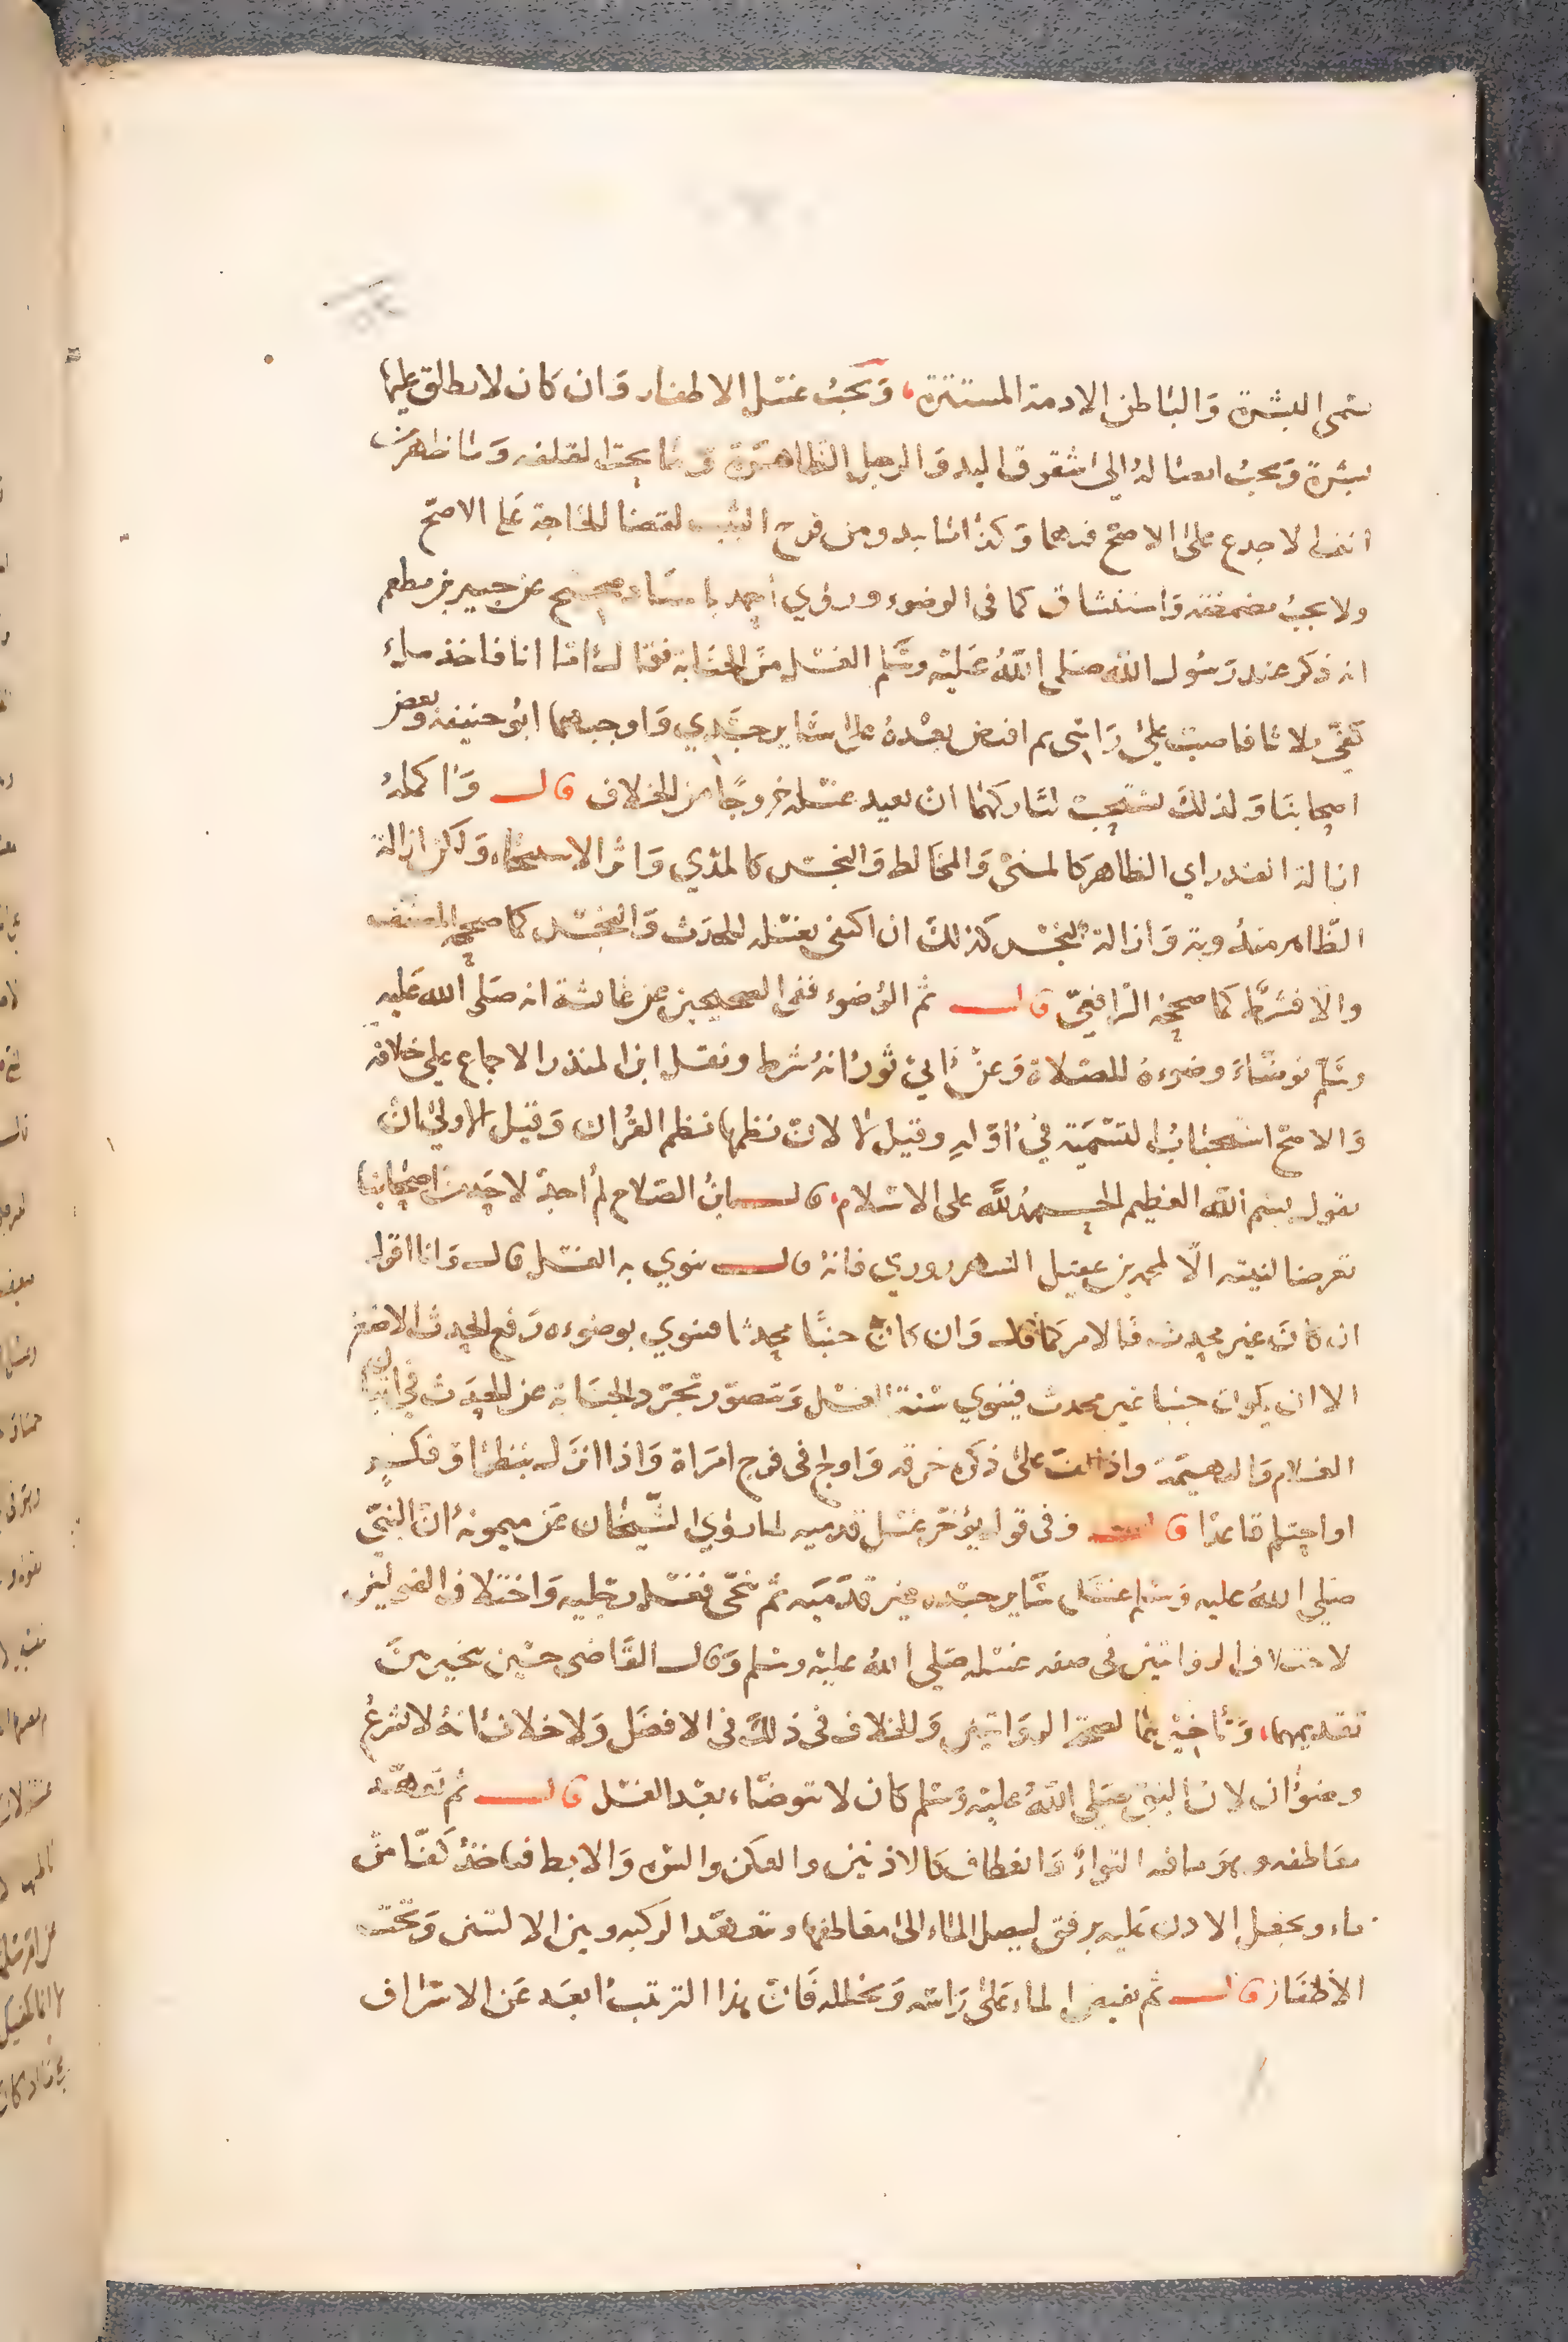 تسمى البشرة والباطن الادمة المستترة، ويجب غسل الاظفار وان كان لا يطلق عليها
بشرة ويجب ايصاله الى شقوق اليد والرجل الظاهرة وما تحت القلفه وما ظهر من
انف لاجدع على الاصح فيهما وكذا ما يبدو من فرج الثيب لقضا الحاجة على الاصح
ولا يجب مضمضة واستنشاق كما فى الوضوء وروي احمد باسناد صحيح عن جبير بن مطعم
انه ذكر عند رسول الله صلى الله عليه وسلم الغسل من الجنابة فقال اما انا فاخذ ملء
كفي ثلاثا فاصب على راسى ثم افيض بعده على ساير جسدي واوجبهما ابو حنيفة وبعض
اصحابنا ولذلك يستحب لتاركهما ان يعيد غسله خروجا من الخلاف قال واكمله
ازالة القذر اي الظاهر كالمنى والمخاط والنجس كالمذي واثر الاستنجاء ولكن ازالة
الطاهر منه وبة وازالة النجس كذلك ان اكتفى بغسله للحدث والنجس كما صححه المصنف
والا فشرط كما صححه الرافعي قال ثم الوضوء ففى الصحيحين عن عائشة انه صلى الله عليه
وسلم توضاء وضوءه للصلاة وعن ابي ثور انه شرط ونقل ابن المنذر الاجماع على خلافه
والاصح استحباب التسمية في اوله وقيل لا لان نظمها نظم القران وقيل الاولى ان
يقول بسم الله العظيم الحمد لله على الاسلام، قال ابن الصلاح لم اجد لاحد من اصحابنا
تعرضا لنيته الا لمحمد بن عقيل الشهرزوري فانه قال ينوي به الغسل قال وانا اقول
ان كان غير محدث فالامر كما قال وان كان جنبا محدثا فينوي بوضوءه رفع الحدث الاصغر
الا ان يكون جنبا غير محدث فينوي سنة الغسل وتصور تجرد الجنابة عن الحدث في اتيان
الغلام والبهيمة واذا لف على ذكره خرقه واولج فى فرج امراة واذا انزل بنظر او فكر
او احتلم قاعدا قال وفى قول يؤخر غسل قدميه لما روي الشيخان عن ميمونة ان النبي
صلى الله عليه وسلم غسل ساير جسده غير قدميه ثم تنحى فغسل رجليه واختلاف القولين
لاختلاف الروايتين فى صفه غسله صلى الله عليه وسلم وقال القاضى حسين يتخير بين
تقديمهما، وتاخيرهما لصحة الروايتين والخلاف فى ذلك فى الافضل ولا خلاف انه لا يشرع
وضوءان لان النبي صلى الله عليه وسلم كان لا يتوضاء بعد الغسل قال ثم تعهد
معاطفه وهو ما فيه التواء وانعطاف كالاذنين والعكن والسره والابط فياخذ كفا من
ماء ويجعل الاذن عليه برفق ليصل الماء الى معاطفها ويتعهد الركبه وبين الاليتين وتحت
الاظفار قال ثم يفيض الماء على راسه ويخلله فان هذا الترتيب ابعد عن الاسراف